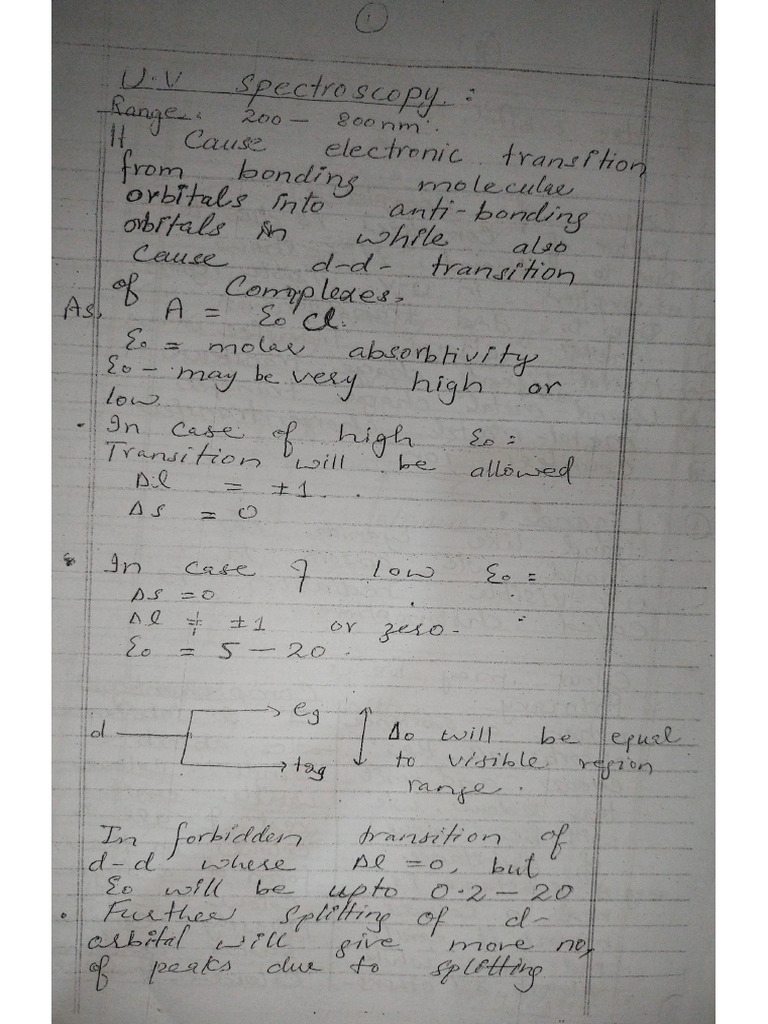 1
U.V Spectroscopy :
Range: 200 – 800nm.
It Cause electronic transition
from bonding molecular
orbitals into anti-bonding
orbitals in while also
Cause d-d- transition
of Complexes,
As, A = Ɛo Cl.
Ɛo = molar absorbtivity
Ɛo – may be very high or
low.
. In case of high Ɛo =
Transition will be allowed
Δl = ±1.
Δs = 0
In case of low Ɛo =
Δs = 0
Δl ≠ ±1 or zero-
Ɛo = 5 – 20.
eg
d
Δo will be equal
t2g to visible region
range.
In forbidden transition of
d-d where Δl = 0, but
Ɛo will be upto 0.2 – 20
. Further splitting of d-
orbital will give more no,
of peaks due to splitting